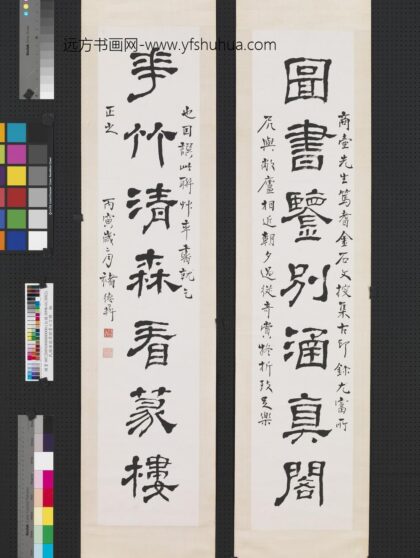 远方书画网-www.yfshuhua.com
圖書鑒別涵真閣
商壺先生篤耆金石文搜集古印鉨尤富所
居與敝廬相近朝夕過從奇賞疑析致足樂
華竹清森看篆樓
也因譔此聯艸率書就乞
正之
丙寅歲二月褚德彝